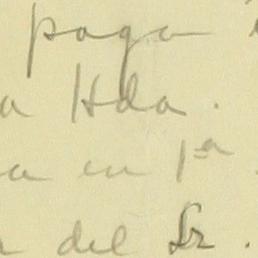 paga
a Hda.
a en 1ª
del Sr.